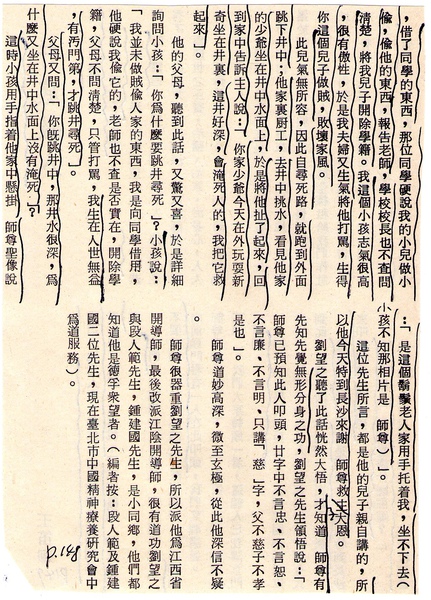 ，借了同學的東西，那位同學硬說我的小兒做小
偷，偷他的東西，報告老師，學校校長也不查問
清楚，將我兒子開除學籍。我這個小孩志氣很高
，很有傲性，於是我夫婦又生氣將他打罵，生得
你這個子做賊，敗壞家風。
此兒氣無所容，因此自尋死路，就跑到外面
跳下井中；他家裏厨工，去井中挑水，看見他家
的少爺坐在井中水面上，於是將他扯了起來，回
到家中告訴主人說：「你家少爺今天在外玩耍新
奇坐在井裏，這井好深，會淹死人的，我把它救
起來」。
他的父母，聽到此話，又驚又喜，於是詳細
詢問小孩：「你爲什麼要跳井尋死」？小孩說：
「我並未做賊偷人家的東西，我是向同學借用，
他硬說我偷它的，老師也不查是否實在，開除學
籍，父母不問清楚，只管打罵，我生在人世無益
，有汚門第，才跳井尋死」。
父母又問：「你旣跳井中，那井水很深，爲
什麼又坐在井中水面上沒有淹死」？
這時小孩用手指着他家中懸掛　師尊聖像說
：「是這個鬍鬚老人家用手托着我，坐不下去（
小孩不知那相片是　師尊）」。
這位先生所言，都是他的兒子親自講的，所
以他今天特到長沙來謝　師尊救主大恩。
劉望之聽了此話恍然大悟，才知道　師尊有
先知先覺無形分身之功，劉望之先生領悟說：「
師尊已預知此人叩頭，廿字中不言忠、不言恕、
不言廉、不言明、只講「慈」字，父不慈子不孝
是也」。
師尊道妙高深，微至玄極，從此他深信不疑
。
師尊很器重劉望之先生，所以派他爲江西省
開導師，最後改派江陰開導師，很有道功劉望之
與段人範先生，鍾建國先生，是小同鄉，他們都
知道他是德孚衆望者。（編者按：段人範及鍾建
國二位先生，現在臺北市中國精神療養研究會中
爲道服務）。
P.198